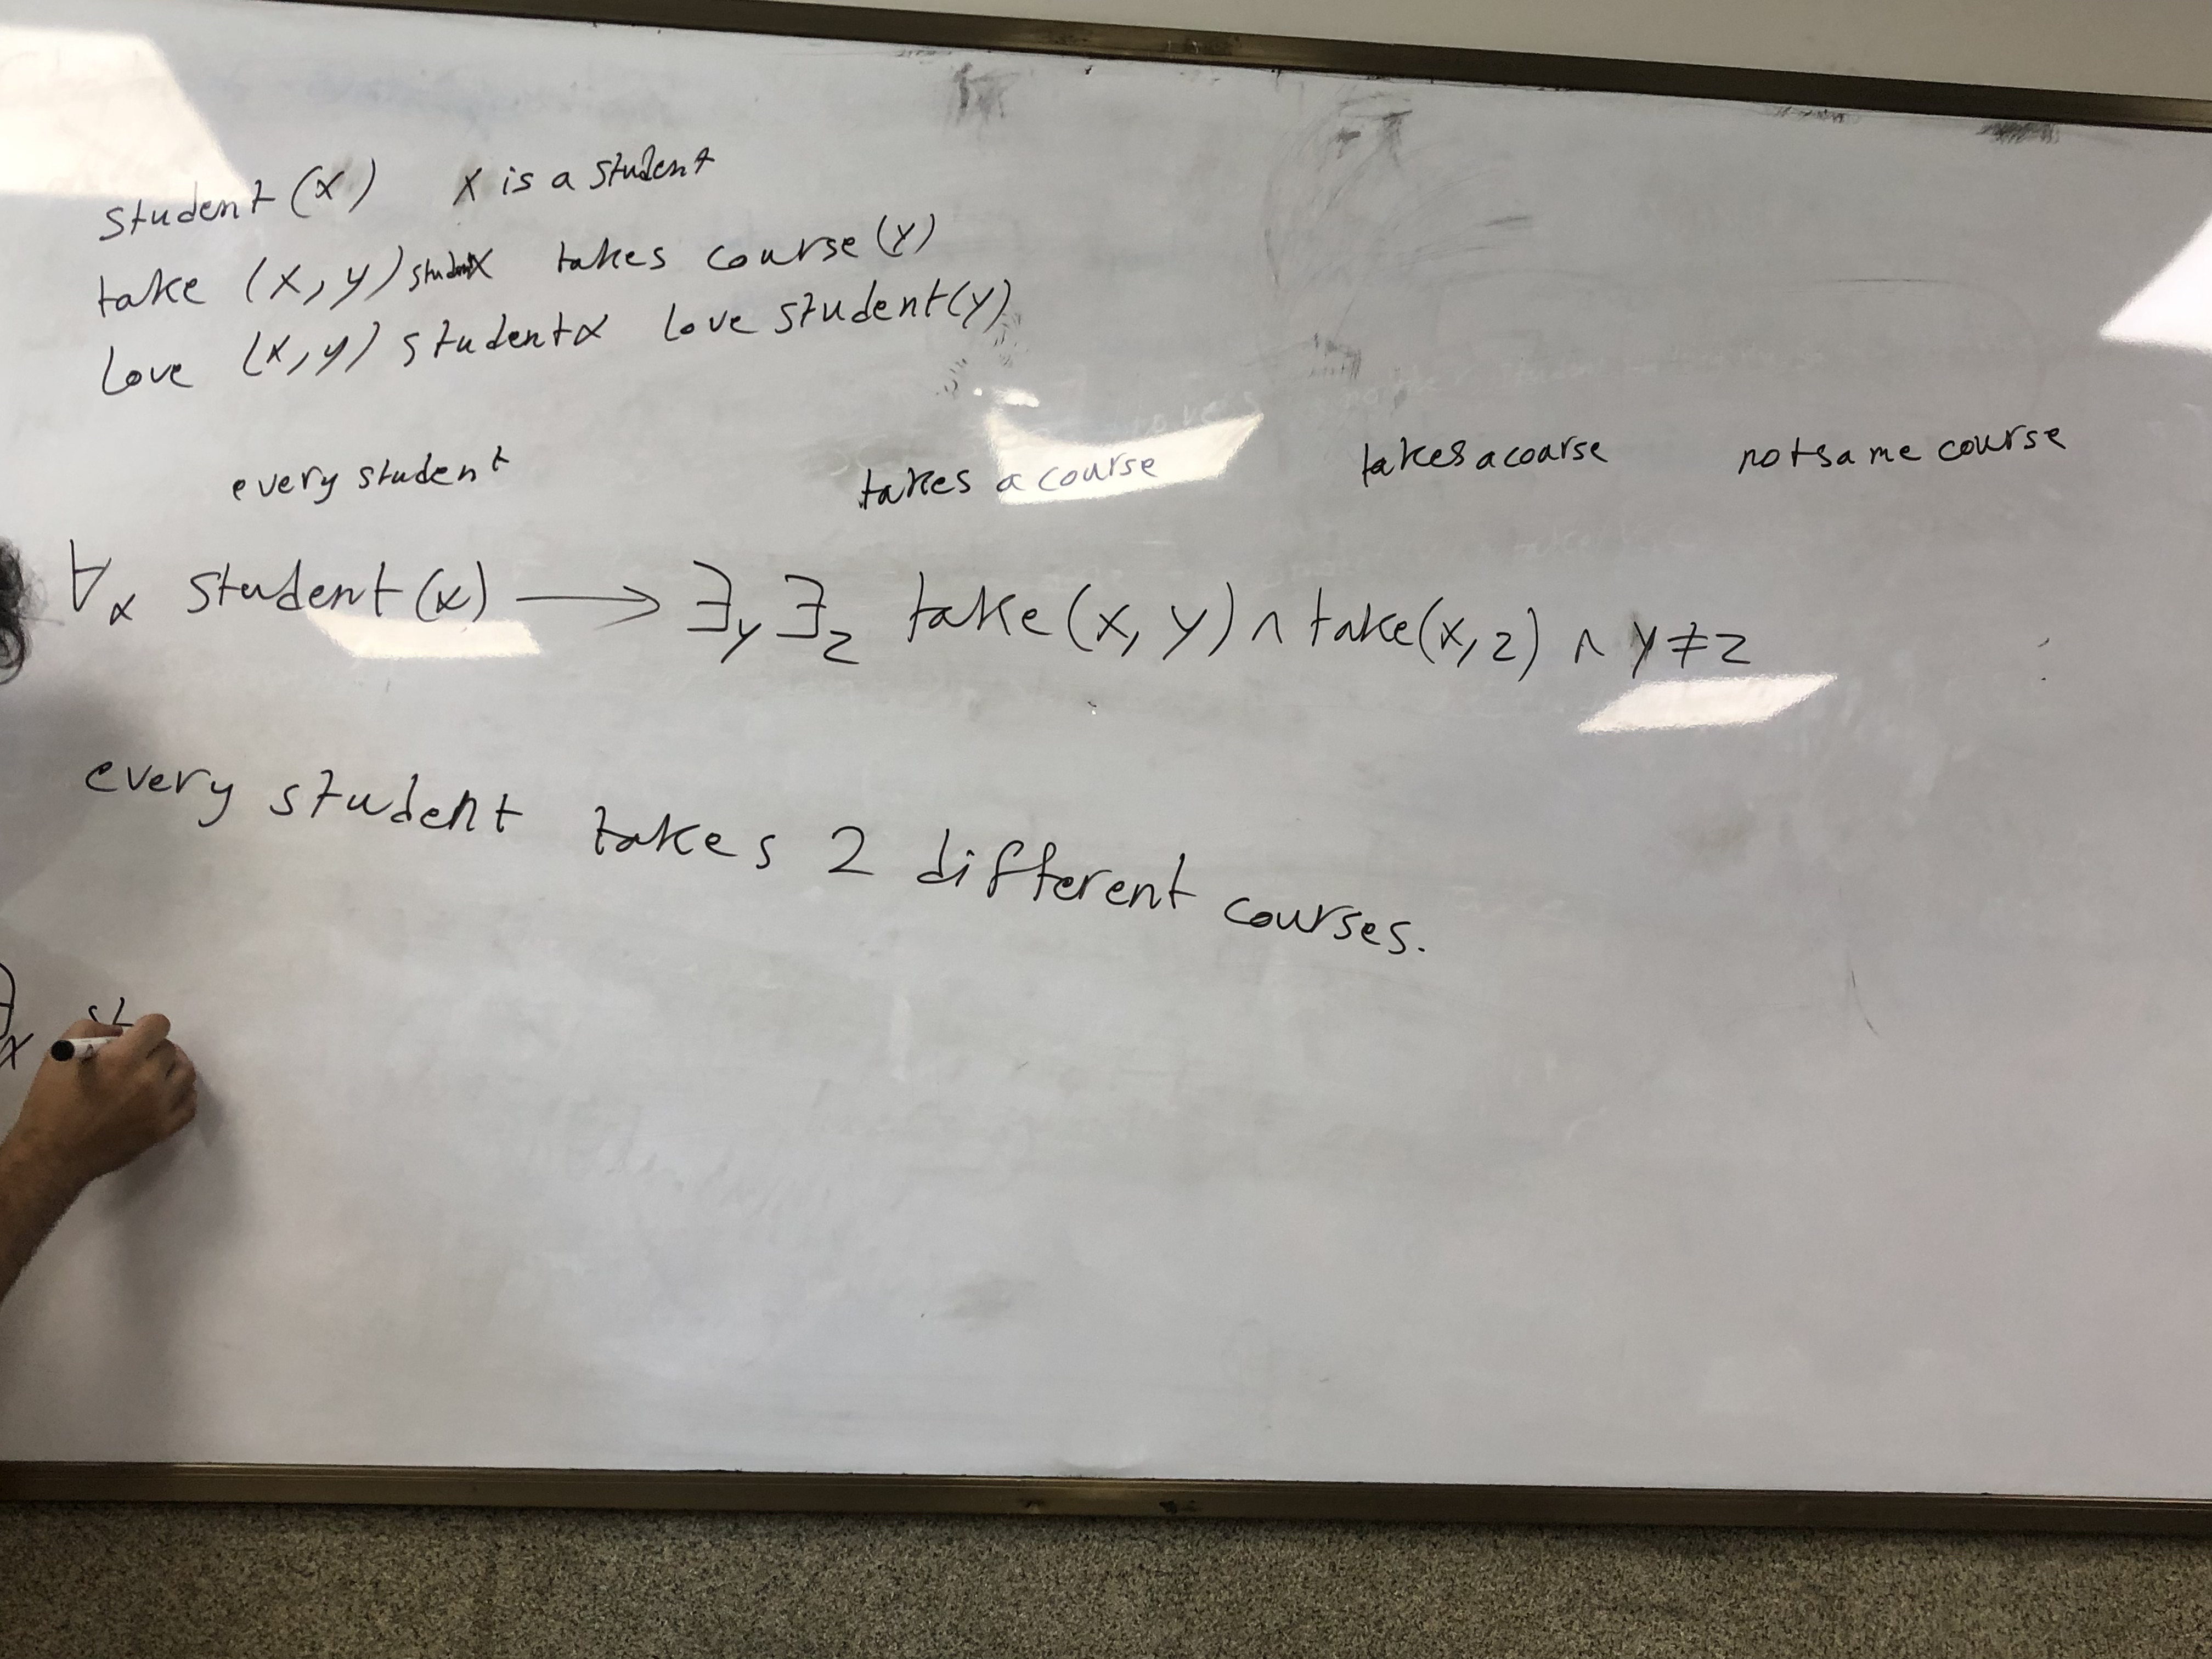 student (x) x is a student
take (x, y) student x takes course (y)
Love (x, y) student x Love student (y)
every student takes a course takes a coarse not same course
∀x student (x) ⟶ ∃y ∃z take (x, y) ∧ take (x, z) ∧ y ≠ z
every student takes 2 different courses.
∃x st